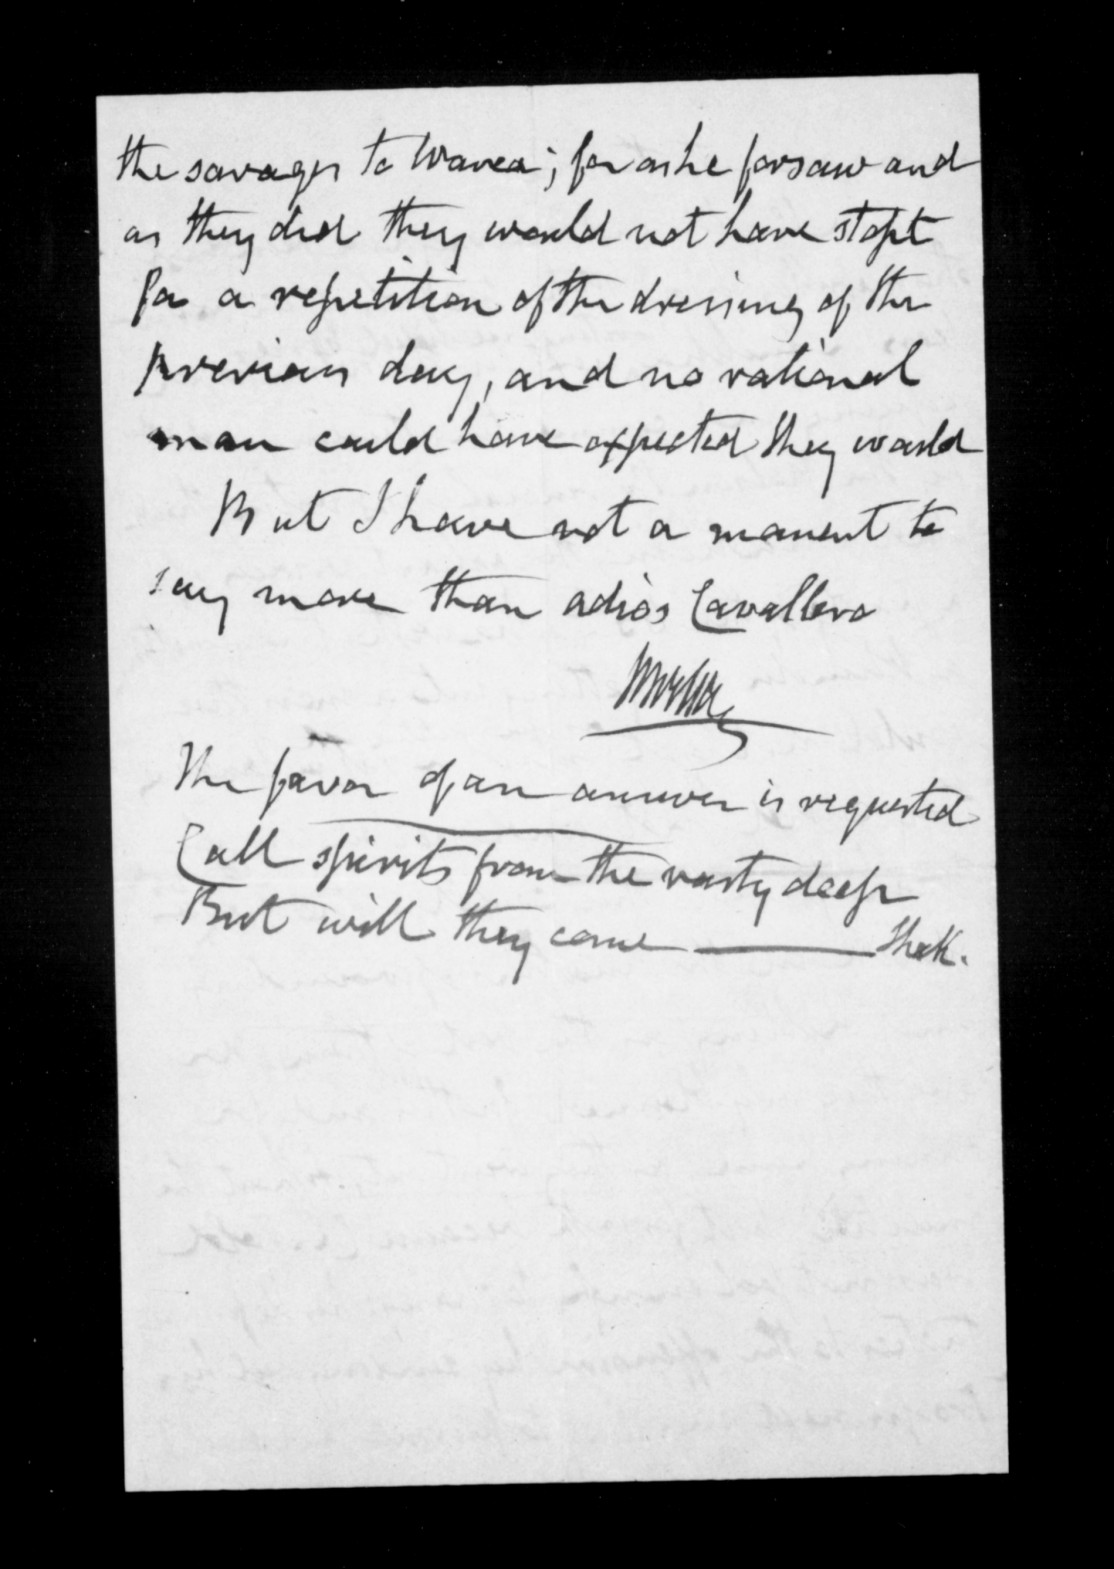 the savages to Warea; for as he forsaw and
as they did they would not have stopt
for a repetition of the dressing of the
previous day, and no rational
man could have expected they would
But I have not a moment to
say more than adios Cavallero
The favor of an answer is requested
Call spirits from the vasty deep
But will they come ——— Shak.